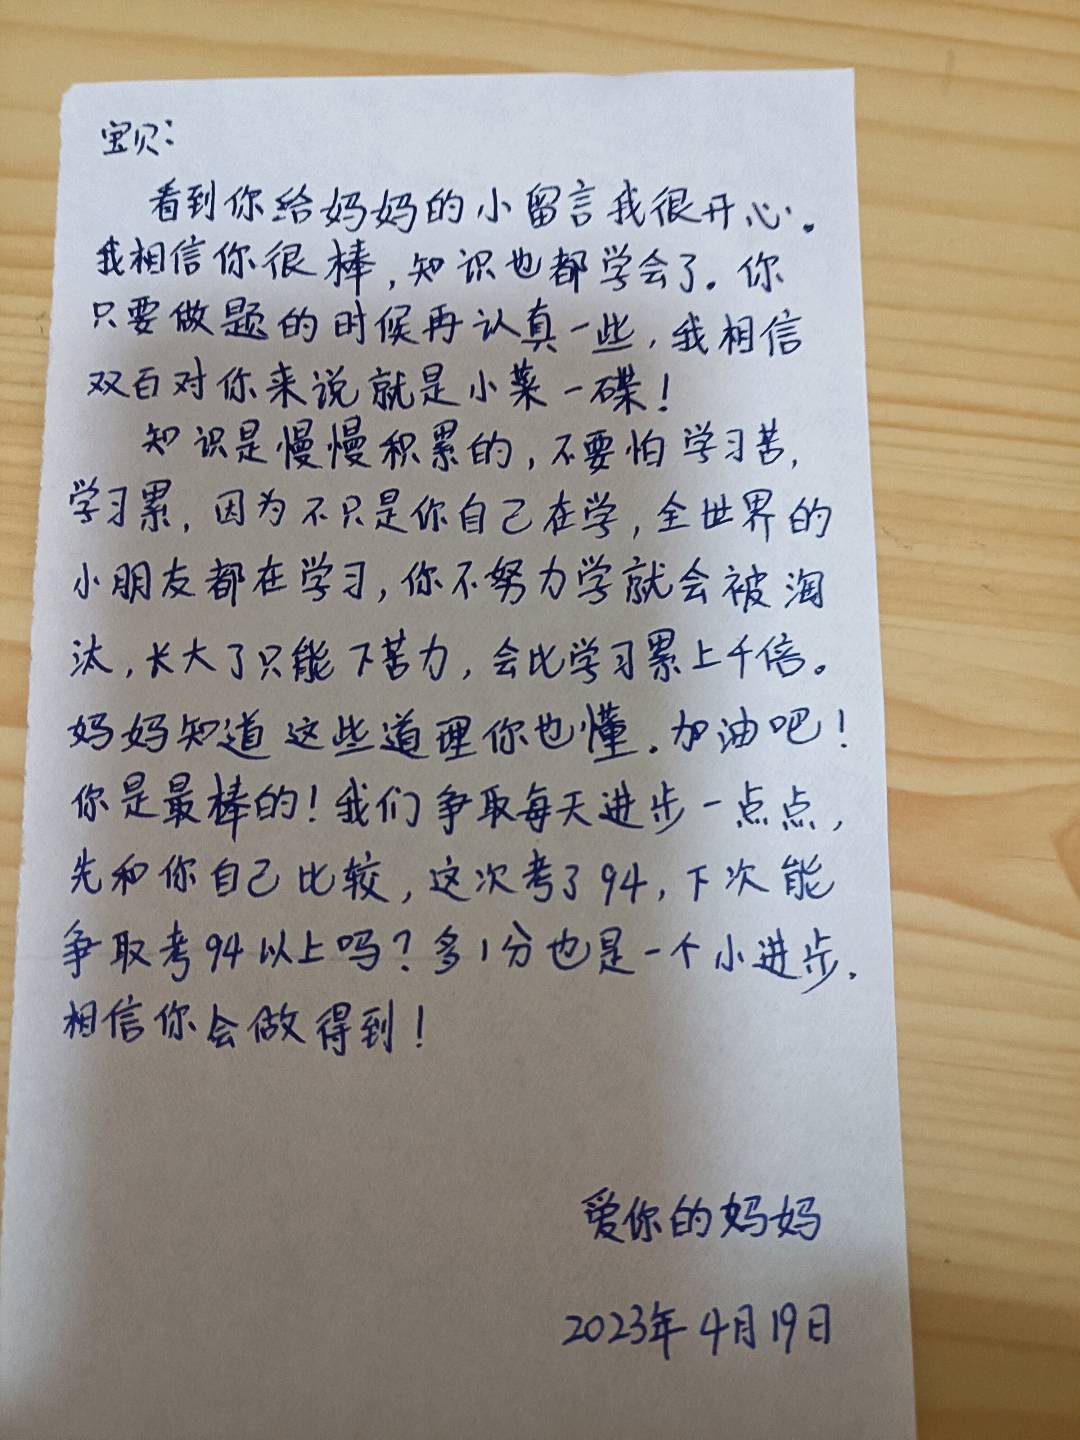 宝贝：
看到你给妈妈的小留言我很开心。
我相信你很棒，知识也都学会了。你
只要做题的时候再认真一些，我相信
双百对你来说就是小菜一碟！
知识是慢慢积累的，不要怕学习苦，
学习累，因为不只是你自己在学，全世界的
小朋友都在学习，你不努力学就会被淘
汰，长大了只能下苦力，会比学习累上千倍。
妈妈知道这些道理你也懂。加油吧！
你是最棒的！我们争取每天进步一点点，
先和你自己比较，这次考了94，下次能
争取考94以上吗？多1分也是一个小进步.
相信你会做得到！
爱你的妈妈
2023年4月19日